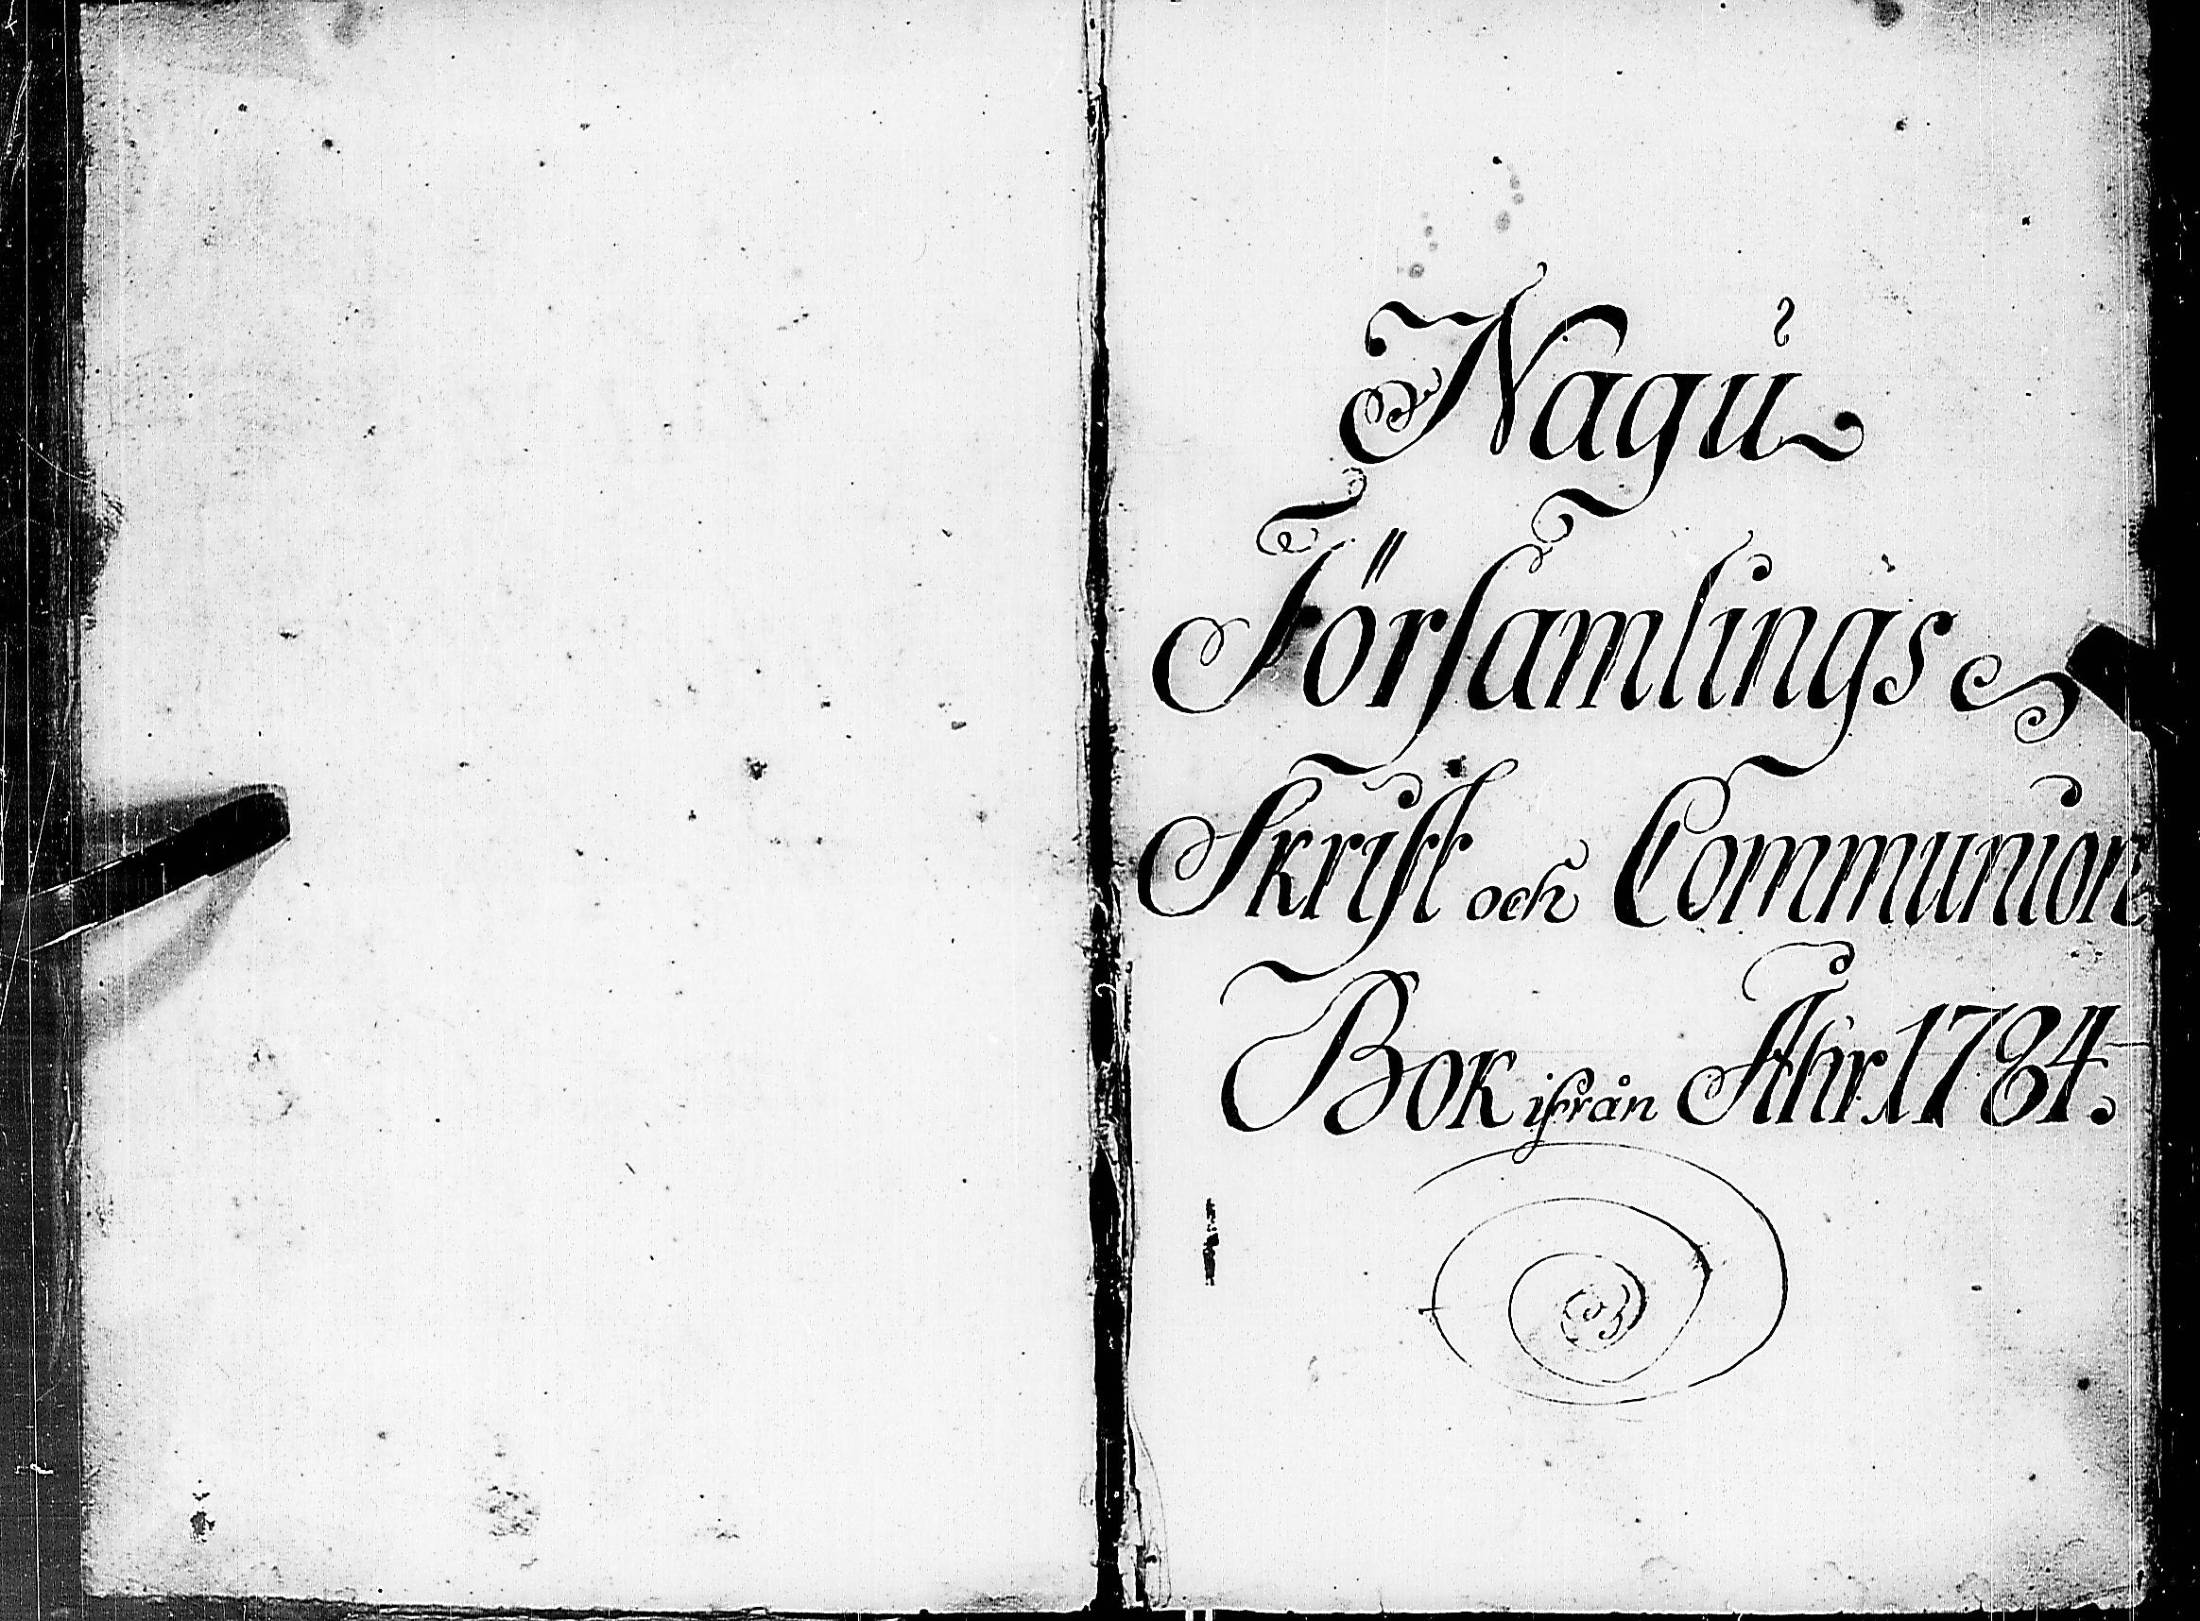 Nagu
Församlings
Skrift och Communion
Bok ifrån Åhr 1784.